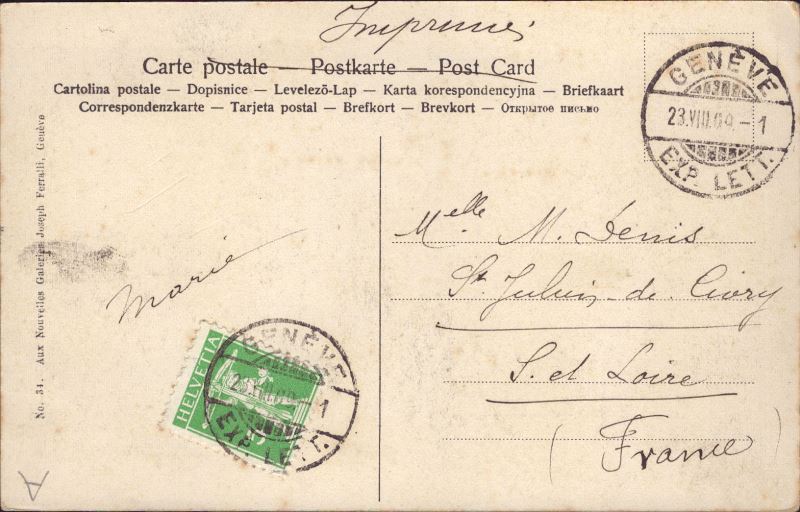 Imprimé
Carte postale — Postkarte — Post Card
Cartolina postale — Dopisnice — Levelező-Lap — Karta korespondencyjna — Briefkaart
Correspondenzkarte — Tarjeta postal — Brefkort — Brevkort — Открытое письмо
GENÈVE
23.VIII.09.–1
EXP. LETT.
No. 34. Aux Nouvelles Galeries Joseph Ferralli, Genève
Melle M. Denis
St Julien-de-Civry
S. et Loire
(France)
Marie
HELVETIA
5
GENÈVE
1
EXP. LETT.
A